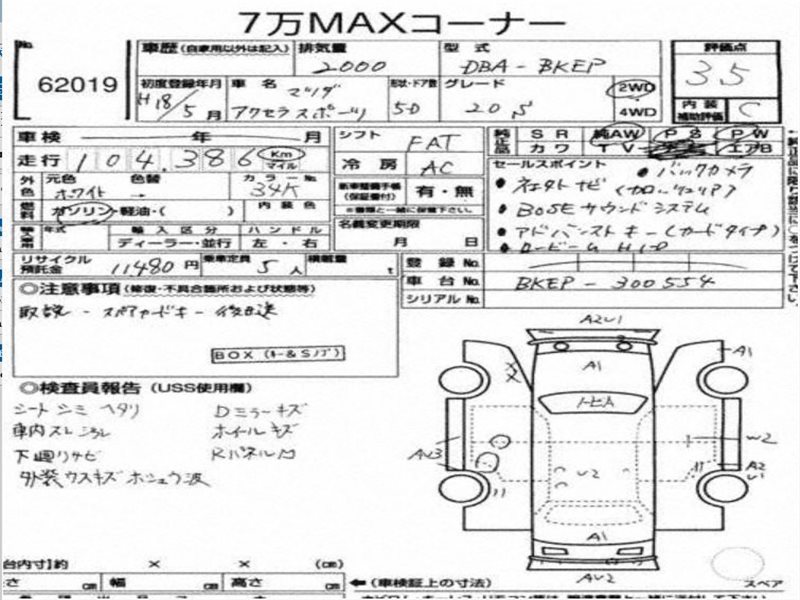 7万MAXコーナー
No.
62019
車歴 (自家用以外は記入)
排気量
2000
型式
DBA-BKEP
評価点
3.5
初度登録年月
H18/5月
車名
マツダ
アクセラスポーツ
形状・ドア数
5D
グレード
20S
2WD
4WD
内装
補助評価
C
車検 年 月
シフト
FAT
純正品
SR 純AW PS PW
カワ TV エアB
走行 104,386 Km マイル
冷房
AC
セールスポイント
・バックカメラ
・社外ナビ(カロッツェリア)
・BOSEサウンドシステム
・アドバンストキー(カードタイプ)
外色
元色
ホワイト
色替
→
カラーNo.
34K
新車整備手帳
(保証書付)
有・無
※書類と一緒に保管下さい。
燃料
ガソリン・軽油・( )
内装色
名義変更期限
月 日
輸入区分
ディーラー・並行
ハンドル
左・右
リサイクル
預託金
11480円
乗車定員
5人
積載量
t
登録No.
車台No.
BKEP-300554
シリアルNo.
◎注意事項(修復・不具合箇所および状態等)
取説・スペアカードキー後日送
BOX(キー&Sノブ)
◎検査員報告 (USS使用欄)
シートシミ ヘタリ
Dミラーキズ
車内スレ
ホイールキズ
下廻りサビ
外装ウスキズ ホシュウ波
A2U1
A1
A1
トビA
AU3
W2
A2
U1
U2
A1
AU2
スペア
台内寸)約 × × (cm)
さ cm 幅 cm 高さ cm
←(車検証上の寸法)